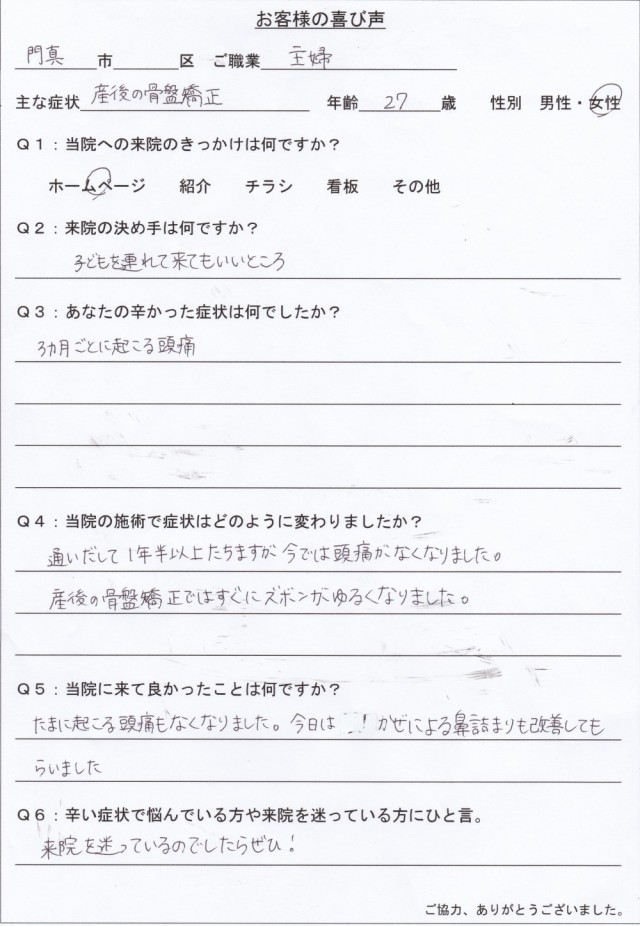 お客様の喜び声
門真 市 区 ご職業 主婦
主な症状 産後の骨盤矯正 年齢 27 歳 性別 男性・女性
Q1：当院への来院のきっかけは何ですか？
ホームページ 紹介 チラシ 看板 その他
Q2：来院の決め手は何ですか？
子どもを連れて来てもいいところ
Q3：あなたの辛かった症状は何でしたか？
3ヵ月ごとに起こる頭痛
Q4：当院の施術で症状はどのように変わりましたか？
通いだして1年半以上たちますが今では頭痛がなくなりました。
産後の骨盤矯正ではすぐにズボンがゆるくなりました。
Q5：当院に来て良かったことは何ですか？
たまに起こる頭痛もなくなりました。今日は ! かぜによる鼻詰まりも改善しても
らいました
Q6：辛い症状で悩んでいる方や来院を迷っている方にひと言。
来院を迷っているのでしたらぜひ！
ご協力、ありがとうございました。